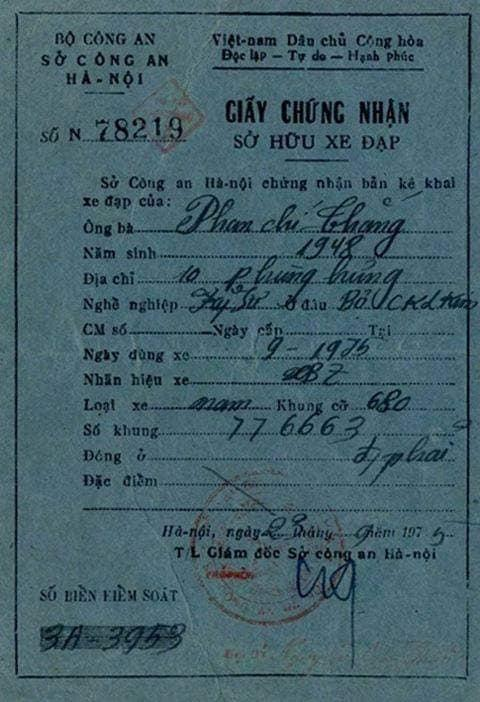 BỘ CÔNG AN
SỞ CÔNG AN
HÀ-NỘI
Việt-nam Dân chủ Cộng hòa
Độc lập — Tự do — Hạnh phúc
SỐ N 78219
GIẤY CHỨNG NHẬN
SỞ HỮU XE ĐẠP
Sở Công an Hà-nội chứng nhận bản kê khai
xe đạp của:
Ông bà Phan chí Thắng
Năm sinh 1948
Địa chỉ 10 Phùng hưng
Nghề nghiệp Kỹ sư Ở đâu Bộ CK LKim
CM số Ngày cấp Tại
Ngày dùng xe 9-1975
Nhãn hiệu xe
Loại xe nam Khung cỡ 680
Số khung 776663
Đóng ở đ phải
Đặc điểm
Hà-nội, ngày 23 tháng 9 năm 1975
TL Giám đốc Sở công an Hà-nội
SỐ BIỂN KIỂM SOÁT
3A-3953